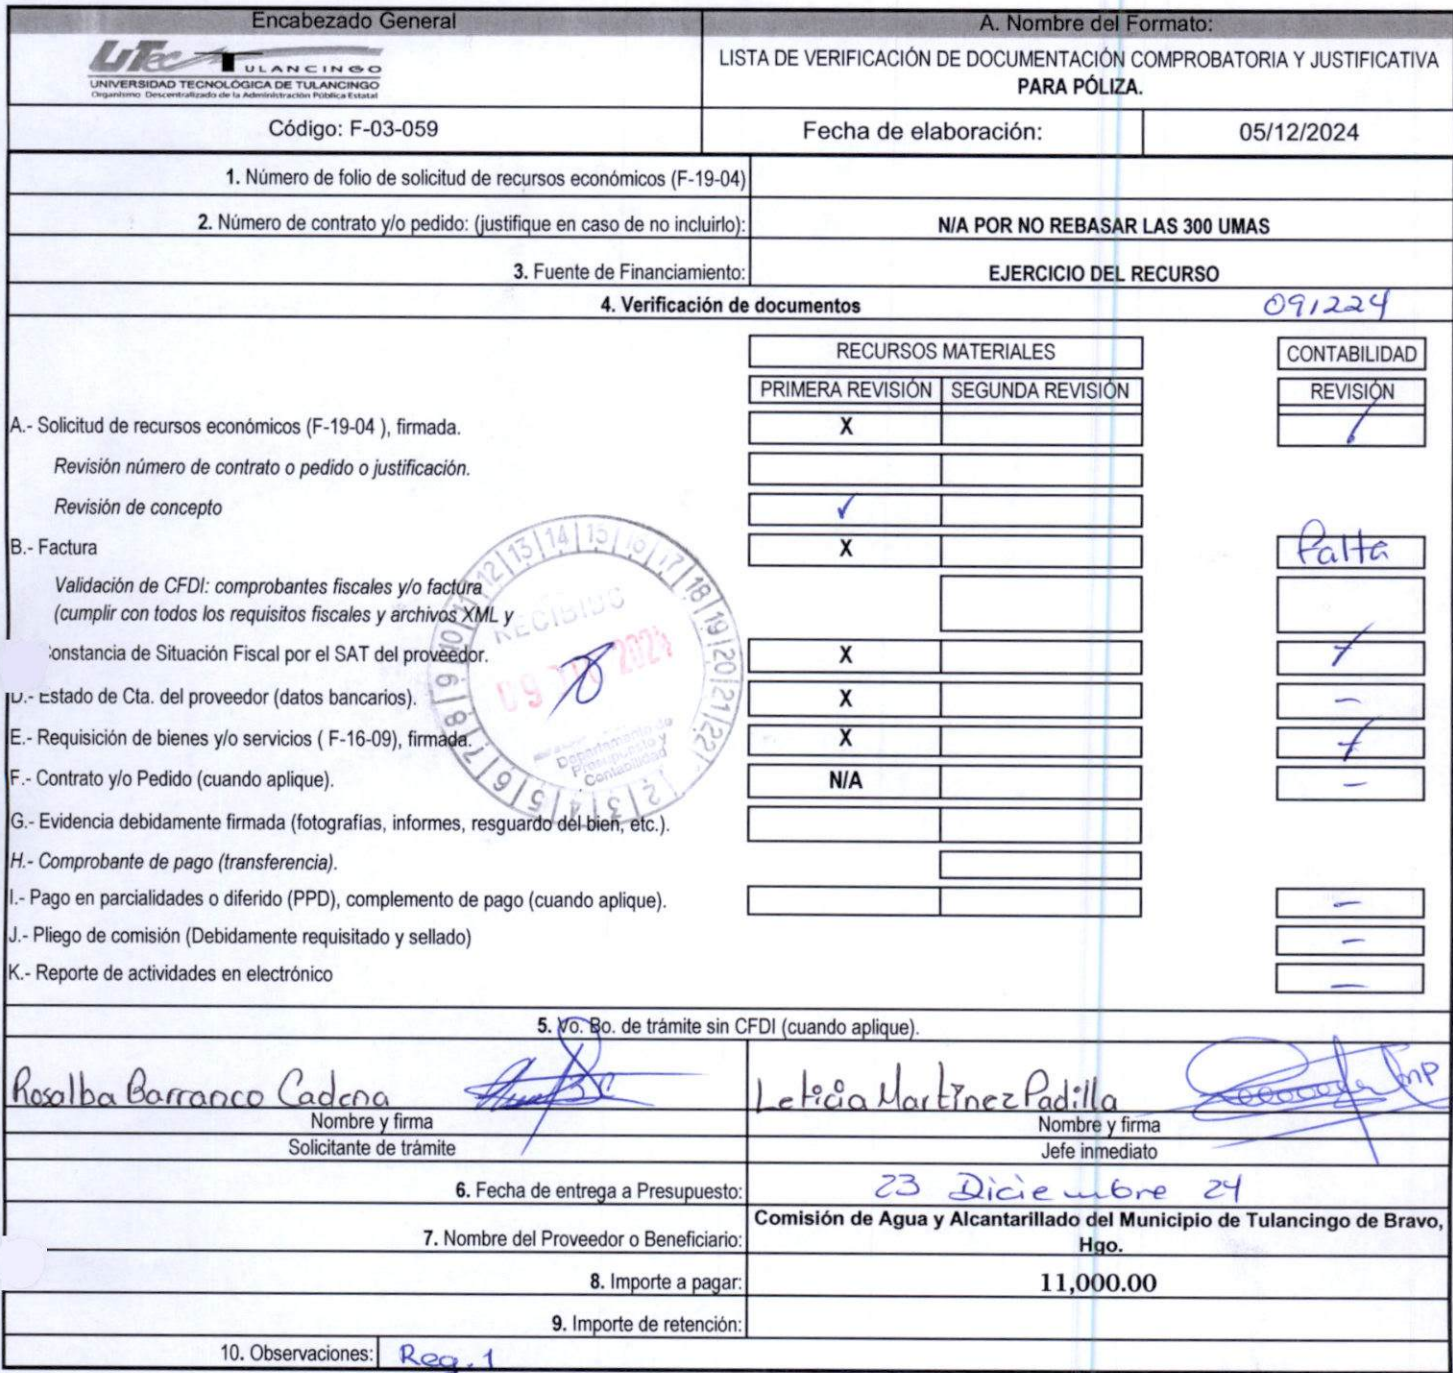 Encabezado General
A. Nombre del Formato:
UTec TULANCINGO
UNIVERSIDAD TECNOLÓGICA DE TULANCINGO
Organismo Descentralizado de la Administración Pública Estatal
LISTA DE VERIFICACIÓN DE DOCUMENTACIÓN COMPROBATORIA Y JUSTIFICATIVA
PARA PÓLIZA.
Código: F-03-059
Fecha de elaboración:
05/12/2024
1. Número de folio de solicitud de recursos económicos (F-19-04)
2. Número de contrato y/o pedido: (justifique en caso de no incluirlo):
N/A POR NO REBASAR LAS 300 UMAS
3. Fuente de Financiamiento:
EJERCICIO DEL RECURSO
4. Verificación de documentos
091224
RECURSOS MATERIALES
CONTABILIDAD
PRIMERA REVISIÓN
SEGUNDA REVISIÓN
REVISIÓN
A.- Solicitud de recursos económicos (F-19-04 ), firmada.
X
Revisión número de contrato o pedido o justificación.
Revisión de concepto
✓
B.- Factura
X
Falta
Validación de CFDI: comprobantes fiscales y/o factura
(cumplir con todos los requisitos fiscales y archivos XML y
onstancia de Situación Fiscal por el SAT del proveedor.
X
D.- Estado de Cta. del proveedor (datos bancarios).
X
–
E.- Requisición de bienes y/o servicios ( F-16-09), firmada.
X
F.- Contrato y/o Pedido (cuando aplique).
N/A
–
G.- Evidencia debidamente firmada (fotografías, informes, resguardo del bien, etc.).
H.- Comprobante de pago (transferencia).
I.- Pago en parcialidades o diferido (PPD), complemento de pago (cuando aplique).
–
J.- Pliego de comisión (Debidamente requisitado y sellado)
–
K.- Reporte de actividades en electrónico
–
RECIBIDO
09 DIC 2024
Departamento de
Presupuesto y
Contabilidad
1 2 3 4 5 6 7 8 9 10 11 12 13 14 15 16 17 18 19 20 21 22
5. Vo. Bo. de trámite sin CFDI (cuando aplique).
Rosalba Barranco Cadena
Leticia Martínez Padilla
Nombre y firma
Nombre y firma
Solicitante de trámite
Jefe inmediato
6. Fecha de entrega a Presupuesto:
23 Diciembre 24
7. Nombre del Proveedor o Beneficiario:
Comisión de Agua y Alcantarillado del Municipio de Tulancingo de Bravo,
Hgo.
8. Importe a pagar:
11,000.00
9. Importe de retención:
10. Observaciones:
Req. 1